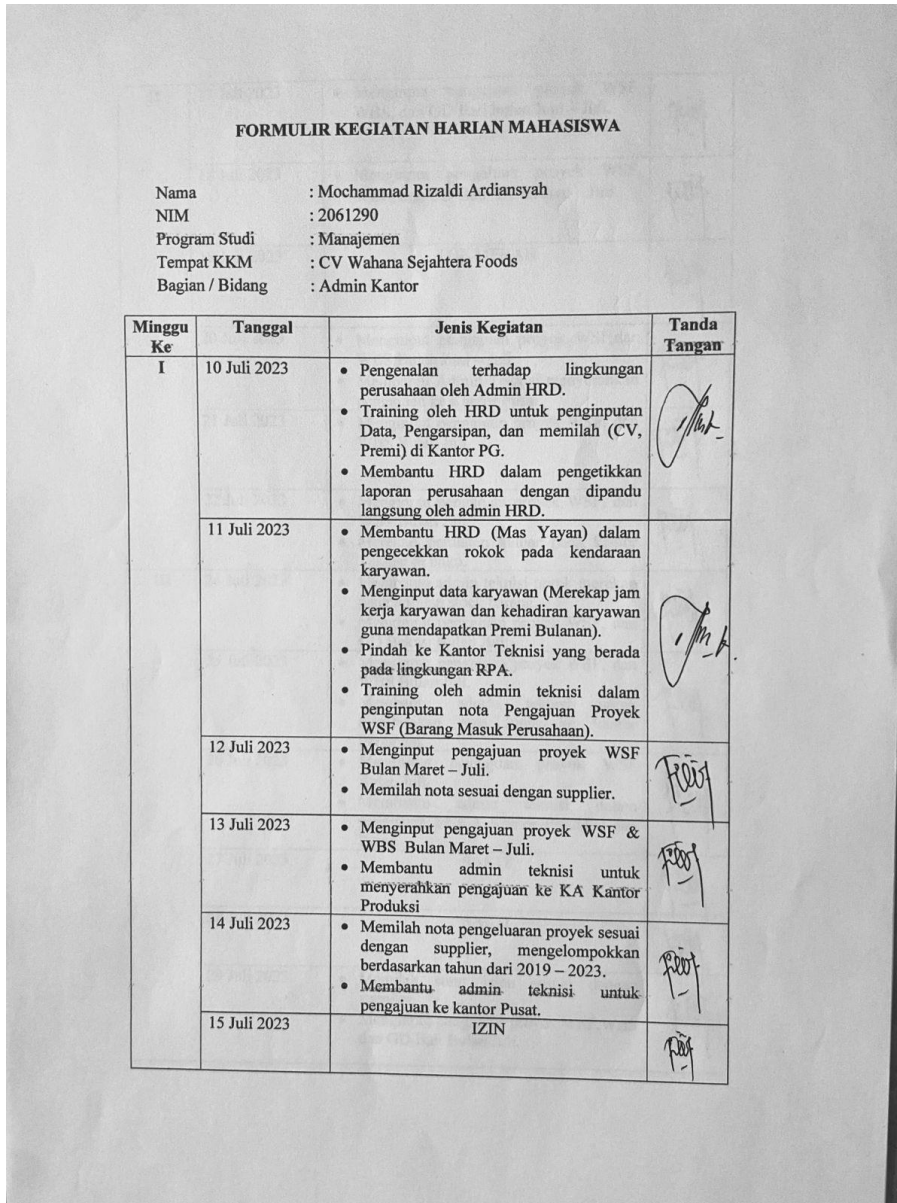 FORMULIR KEGIATAN HARIAN MAHASISWA
Nama : Mochammad Rizaldi Ardiansyah
NIM : 2061290
Program Studi : Manajemen
Tempat KKM : CV Wahana Sejahtera Foods
Bagian / Bidang : Admin Kantor
Minggu Ke Tanggal Jenis Kegiatan Tanda Tangan
I 10 Juli 2023
• Pengenalan terhadap lingkungan
perusahaan oleh Admin HRD.
• Training oleh HRD untuk penginputan
Data, Pengarsipan, dan memilah (CV,
Premi) di Kantor PG.
• Membantu HRD dalam pengetikkan
laporan perusahaan dengan dipandu
langsung oleh admin HRD.
11 Juli 2023
• Membantu HRD (Mas Yayan) dalam
pengecekkan rokok pada kendaraan
karyawan.
• Menginput data karyawan (Merekap jam
kerja karyawan dan kehadiran karyawan
guna mendapatkan Premi Bulanan).
• Pindah ke Kantor Teknisi yang berada
pada lingkungan RPA.
• Training oleh admin teknisi dalam
penginputan nota Pengajuan Proyek
WSF (Barang Masuk Perusahaan).
12 Juli 2023
• Menginput pengajuan proyek WSF
Bulan Maret – Juli.
• Memilah nota sesuai dengan supplier.
13 Juli 2023
• Menginput pengajuan proyek WSF &
WBS Bulan Maret – Juli.
• Membantu admin teknisi untuk
menyerahkan pengajuan ke KA Kantor
Produksi
14 Juli 2023
• Memilah nota pengeluaran proyek sesuai
dengan supplier, mengelompokkan
berdasarkan tahun dari 2019 – 2023.
• Membantu admin teknisi untuk
pengajuan ke kantor Pusat.
15 Juli 2023
IZIN